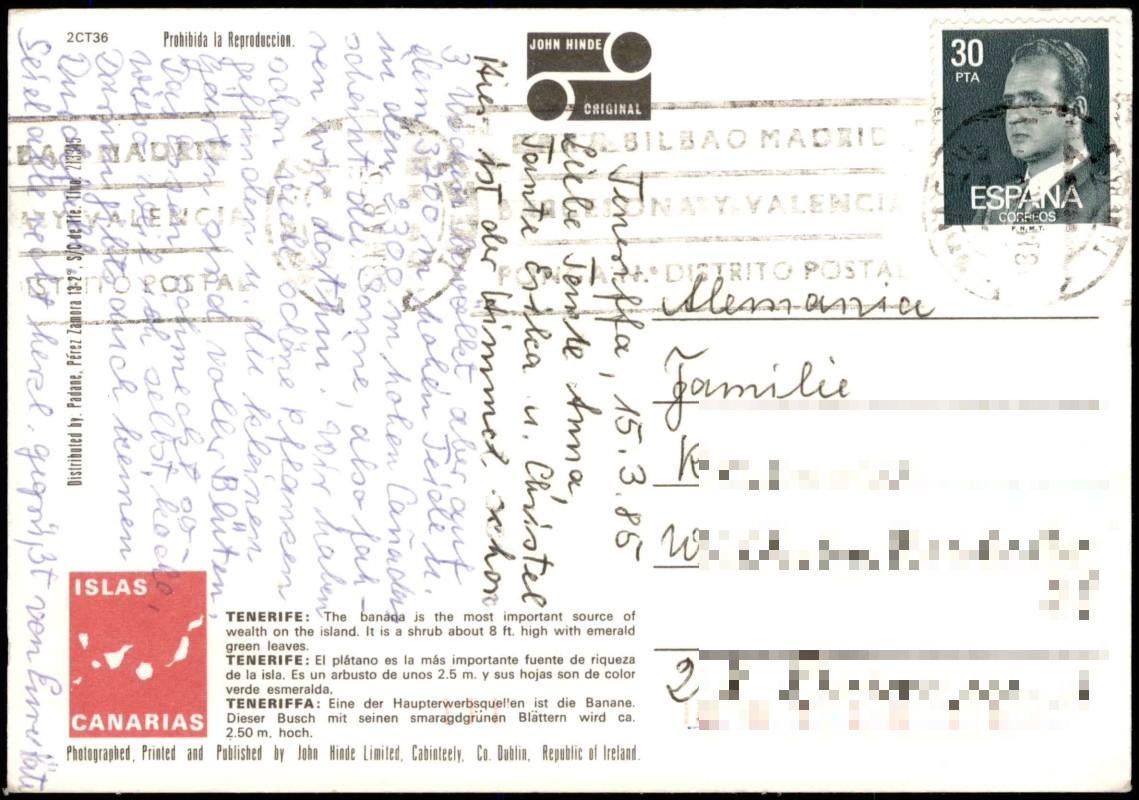 2CT36
Prohibida la Reproduccion.
JOHN HINDE
ORIGINAL
30
PTA
ESPAÑA
CORREOS
F.N.M.T.
BILBAO MADRID
BARCELONA Y VALENCIA
PONGA N.º DISTRITO POSTAL
Teneriffa, 15.3.85
Liebe Tante Anna,
Tante Erika u. Christel
Hier ist der Himmel schon
3 Wochen bewölkt, aber auf
dem 3700 m hohen Teide u.
in den 2300 m hohen Cañadas
scheint die Sonne, also fah-
ren wir dorthin. Wir haben
schon viele schöne Pflanzen
gefunden u. die kleinen
Gärten sind voller Blüten,
Das Essen schmeckt so
wie
Darum gibt
Seid alle recht herzl. gegrüßt von Eurer Käte
Alemania
Familie
K
W
2
Distributed by. Padane, Pérez Zamora 13-2º, S/C de Tfe. Tfno.
ISLAS
CANARIAS
TENERIFE: The banana is the most important source of
wealth on the island. It is a shrub about 8 ft. high with emerald
green leaves.
TENERIFE: El plátano es la más importante fuente de riqueza
de la isla. Es un arbusto de unos 2.5 m. y sus hojas son de color
verde esmeralda.
TENERIFFA: Eine der Haupterwerbsquellen ist die Banane.
Dieser Busch mit seinen smaragdgrünen Blättern wird ca.
2.50 m. hoch.
Photographed, Printed and Published by John Hinde Limited, Cabinteely, Co. Dublin, Republic of Ireland.